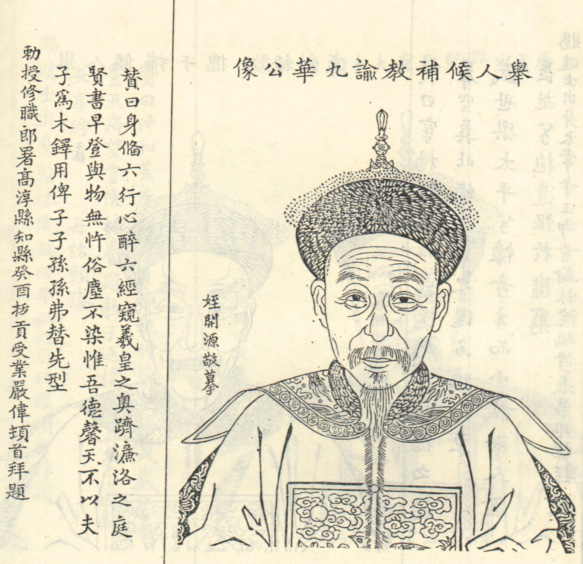 舉人候補教諭九華公像
姪開源敬摹
賛曰身脩六行心醉六經窺羲皇之奧躋濂洛之庭
賢書早登與物無忤俗塵不染惟吾德馨天不以夫
子爲木鐸用俾子子孫孫弗替先型
勅授修職郎署高淳縣知縣癸酉拔貢受業嚴偉頓首拜題